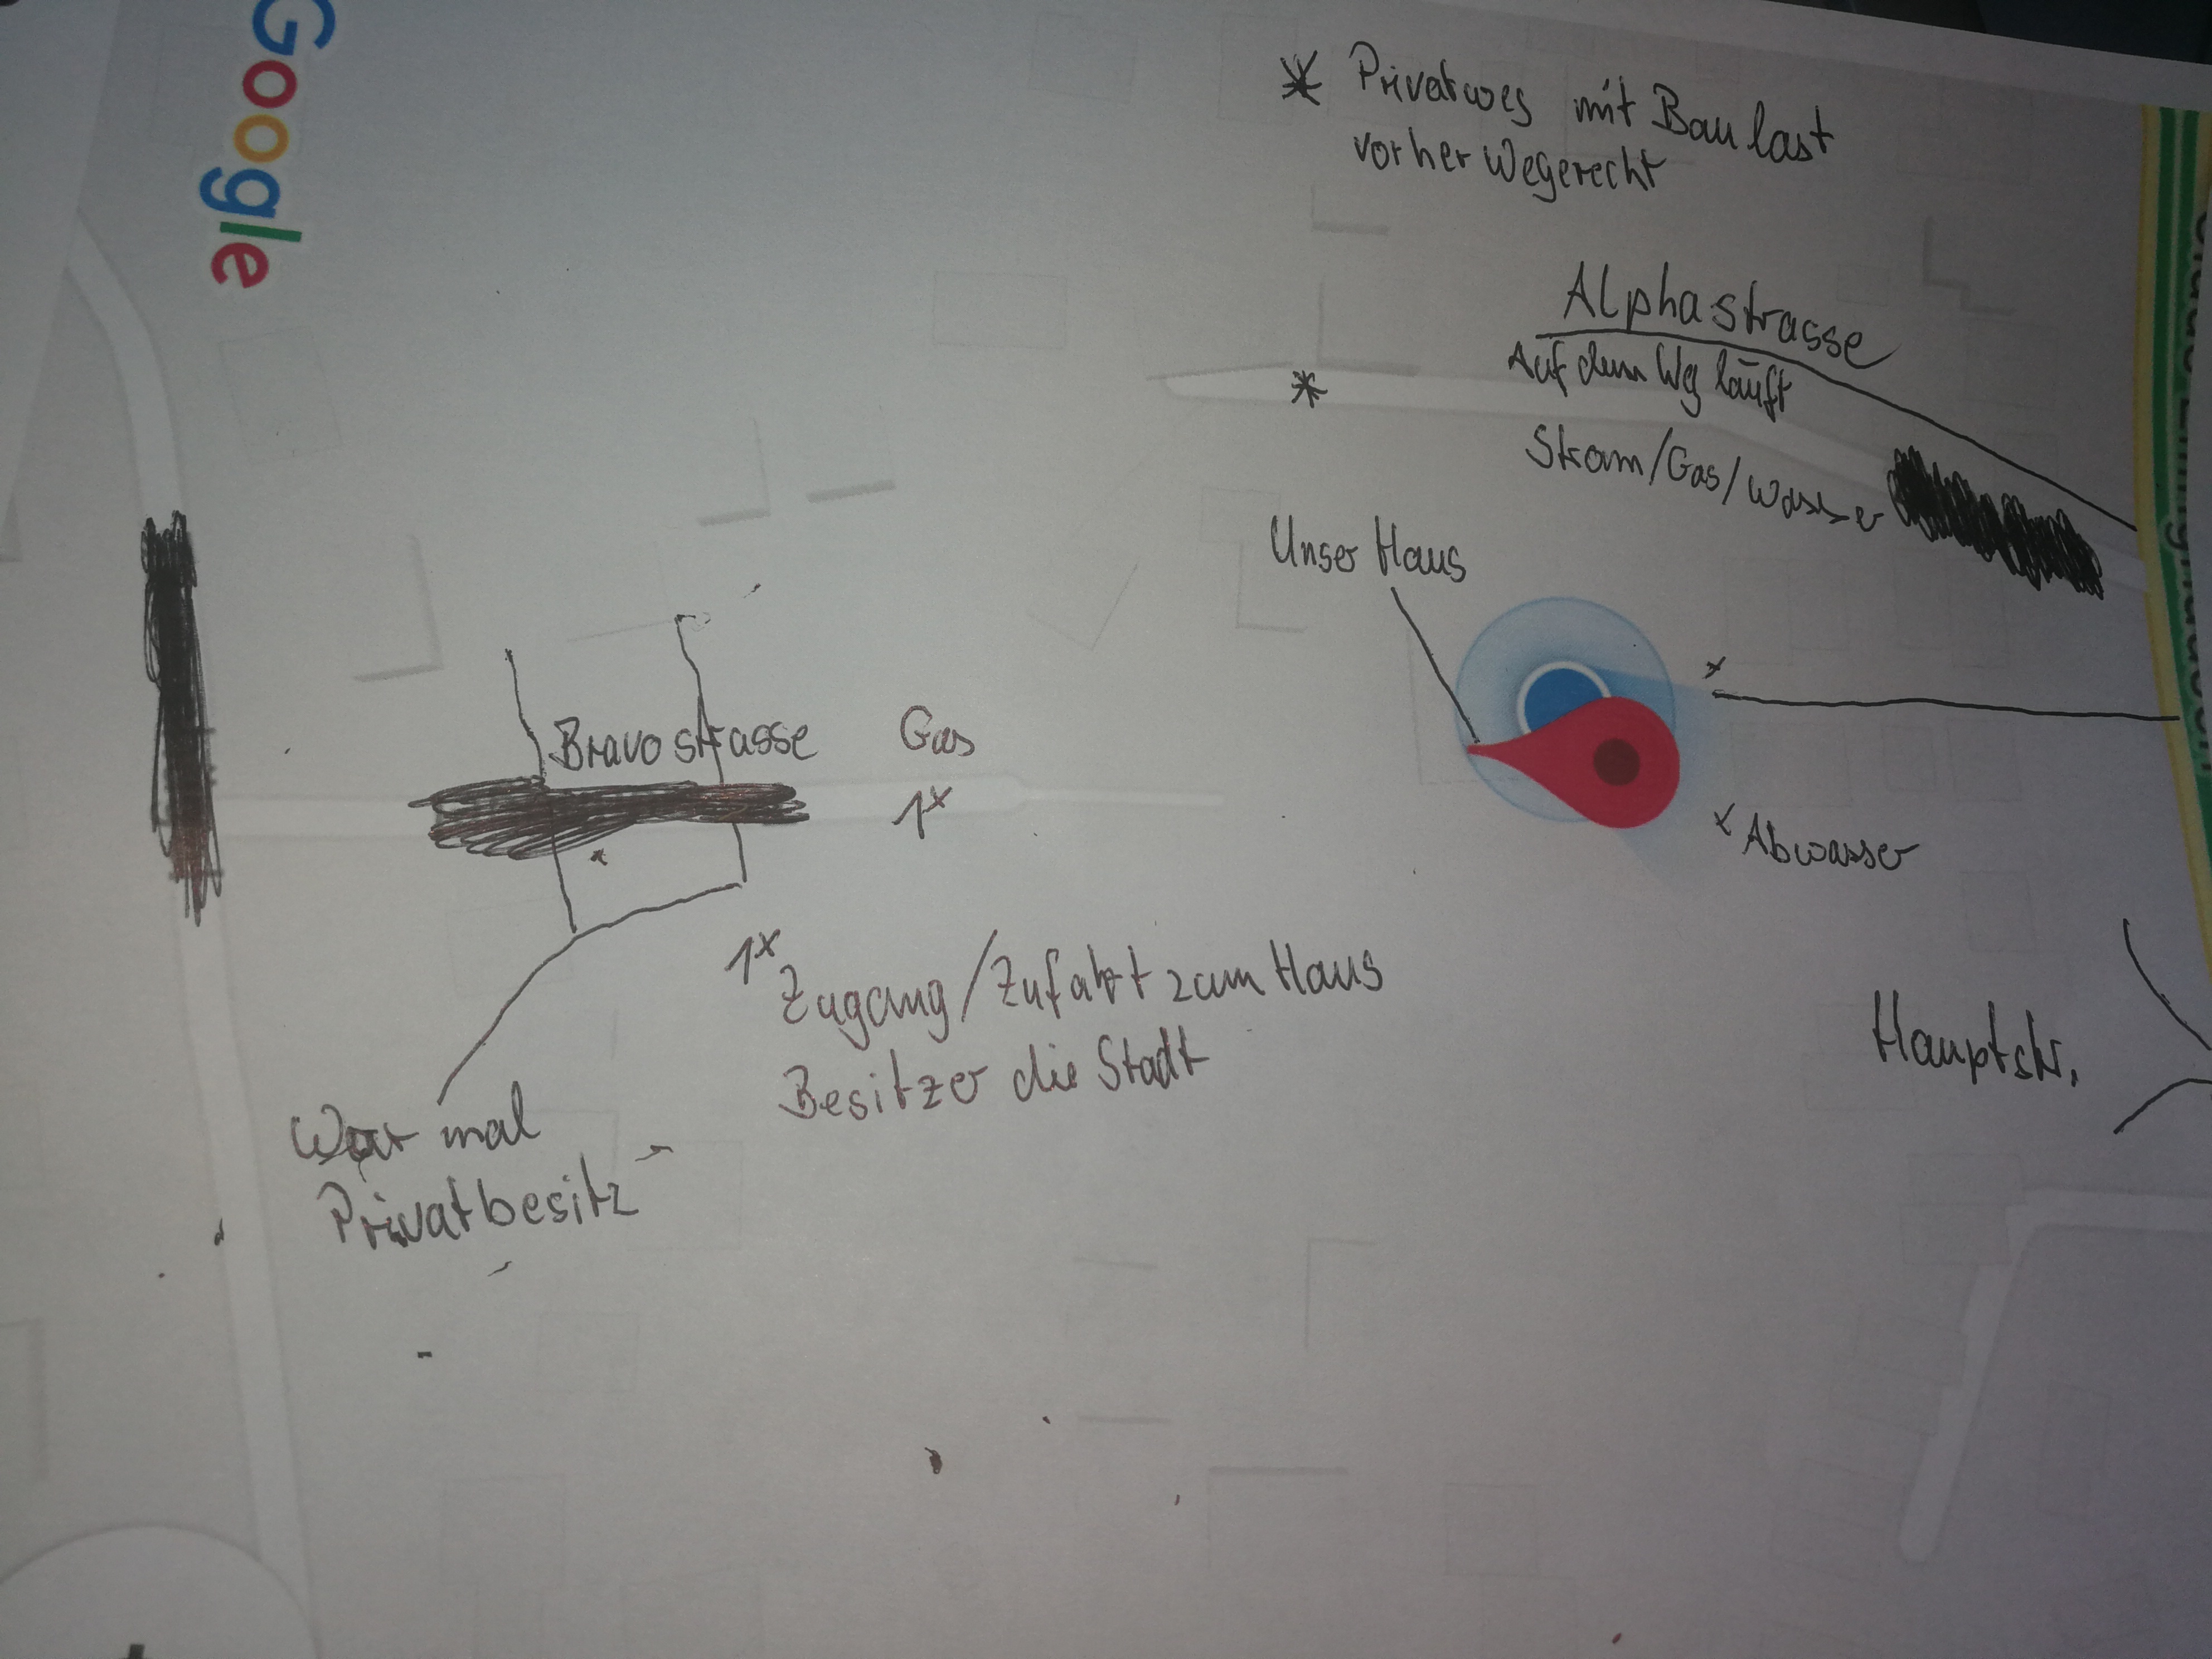 Google
* Privatweg mit Baulast
vorher Wegerecht
Alphastrasse
Auf dem Weg läuft
Strom/Gas/Wasser
*
Unser Haus
x
Bravostrasse
Gas
1x
x Abwasser
1x
Zugang/Zufahrt zum Haus
Besitzer die Stadt
Hauptstr.
War mal
Privatbesitz